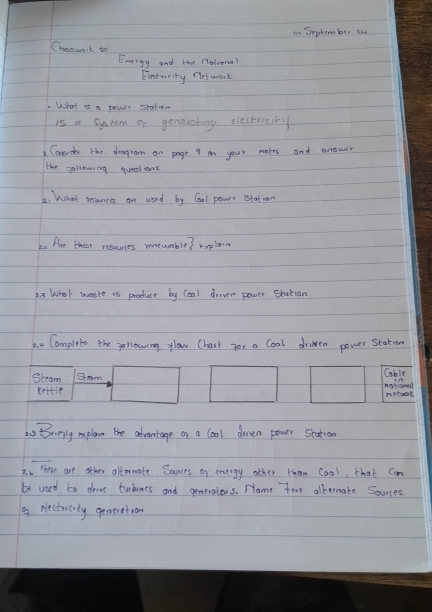 September
Classwork
Energy and the National
Electricity Network
1. What is a power station
is a system of generating electricity
2. Consider the diagram on page 9 on your notes and answer
the following questions
2. What resources are used by Coal power station
2.2 Are these resources renewable? explain
2.3 What waste is produce by Coal driven power station
2.4 Complete the following flow Chart for a Coal driven power station
Steam
Kettle
Steam
Cable
in
national
network
2.5 Briefly explain the advantage of a Coal driven power station
2.6 There are other alternate Sources of energy other than Coal, that can
be used to drive turbines and generators. Name Five alternate Sources
of electricity generation